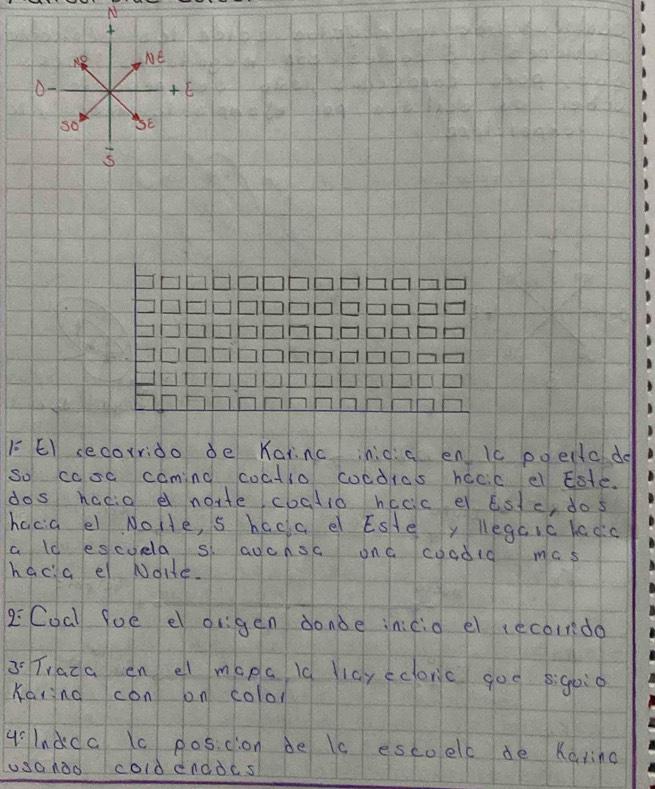 N
+
NO
NE
O-
+ E
SO
SE
-
S
1= El recorrido de Karina inicia en la puerta de
su casa camina cuatro cuadras hacia el Este.
dos hacia el norte, cuatro hacia el Este, dos
hacia el Norte, 5 hacia el Este y llegara
a la escuela si avansa una cuadra mas
hacia el Norte.
2= Cual fue el origen donde inicio el recorrido
3= Traza en el mapa la trayectoria que siguio
Karina con un color
4= Indica la posicion de la escuela de Karina
usando cordenadas